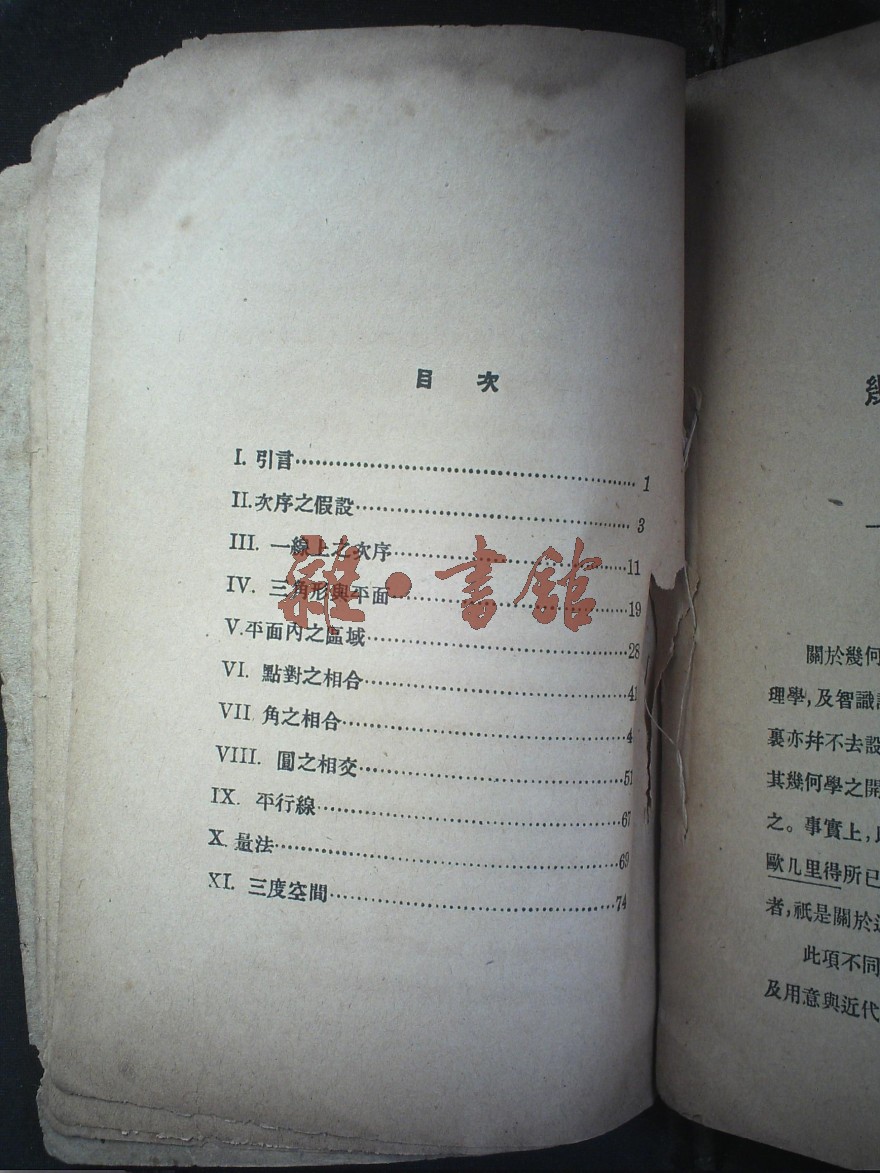 目 次
I. 引言 1
II. 次序之假設 3
III. 一線上之次序 11
IV. 三角形與平面 19
V. 平面內之區域 28
VI. 點對之相合 41
VII. 角之相合 4
VIII. 圓之相交 51
IX. 平行線 67
X. 量法 69
XI. 三度空間 74
雜·書館
幾
一
關於幾何
理學,及智識
裏亦幷不去設
其幾何學之開
之。事實上,
歐几里得所已
者,祇是關於
此項不同
及用意與近代